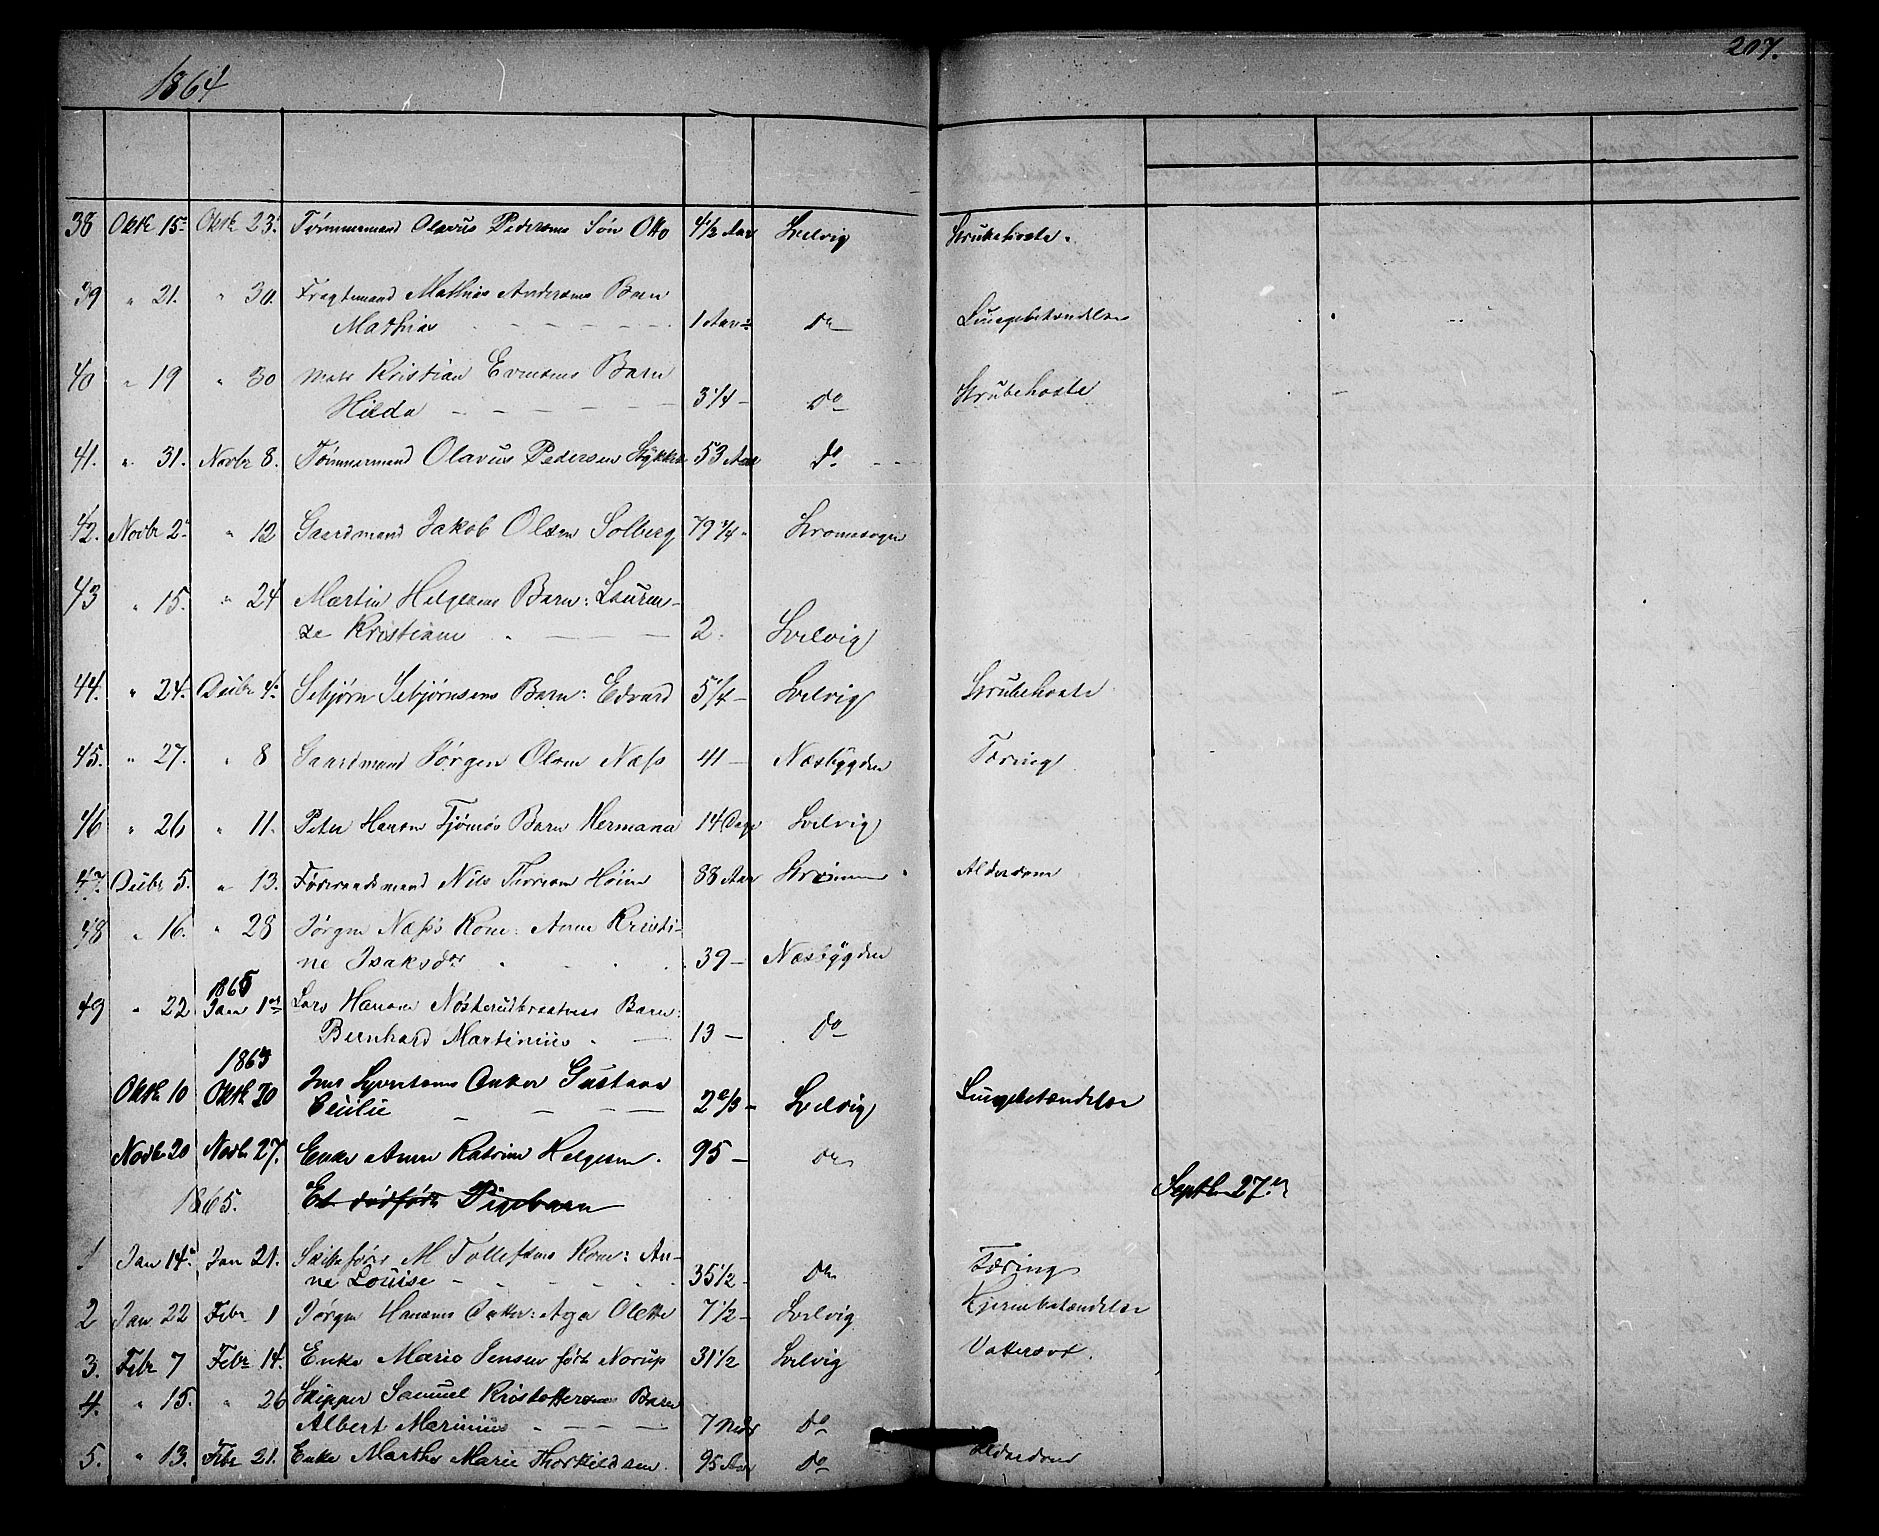 1864
207.
38 Oktb 15 Oktb 23. Tømmermand Olavus Pedersens Søn Otto 4 1/2 Aar Svelvig Strubehoste.
39 " 21. " 30. Fragtemand Mathias Andersens Barn
Mathias 1 Aar Do Lungebetændelse
40 " 19 " 30 Mats Kristian Evensens Barn
Hilda 3 1/4 Do Strubehoste
41. " 31. Novbr 8. Tømmermand Olavus Pedersen 53 Aar Do
42. Novbr 2 " 12 Gaardmand Jakob Olsen Solberg 79 1/4 Strømsogn
43 " 15. " 24 Martin Helgesens Barn: Lauren-
ze Kristiane 2. Svelvig
44. " 24. Decbr 4. Sebjørn Sebjørnsens Barn: Edvard 5 1/4 Svelvig Strubehoste
45. " 27. " 8 Gaardmand Jørgen Olsen Næss 41 Næsbygden Tæring
46 " 26 " 11. Peter Hansen Tjømøs Barn Hermana 14 Dage Svelvig
47. Decbr 5. " 13. Føderaadsmand Nils Høien 88 Aar Strømmen Alderdom
48 " 16. " 28 Jørgen Næss's Kone: Anne Kristi-
ne Isaksdr 39 Næsbygden
1865
49 " 22 Jan 1 Lars Hansen Barn:
Bernhard Martinius 13 Do
1863
Oktb 10 Oktb 20 Jens Syvertsens Datter Gustava
Cecilie 2 2/3 Svelvig Lungebetændelse
Novbr 20 Novbr 27. Enke Anne Katrine Helgesen. 95 Do
1865. Et dødfødt Pigebarn Septbr 27
1 Jan 14 Jan 21. M Tollefsens Kone: An-
ne Louise 35 1/2 Do Tæring
2 Jan 22 Febr 1 Jørgen Hansens Datter: Olette 7 1/2 Svelvig Hjernebetændelse
3. Febr 7 Febr 14. Enke Marie Jensen født Norup 31 1/2 Svelvig Vattersot.
4. " 15. " 26 Skipper Samuel Kristoffersens Barn
Albert Marinius 7 Mdr Do
5. " 13. Febr 21. Enke Marthe Marie Thorkildsen. 95 Aar Do Alderdom